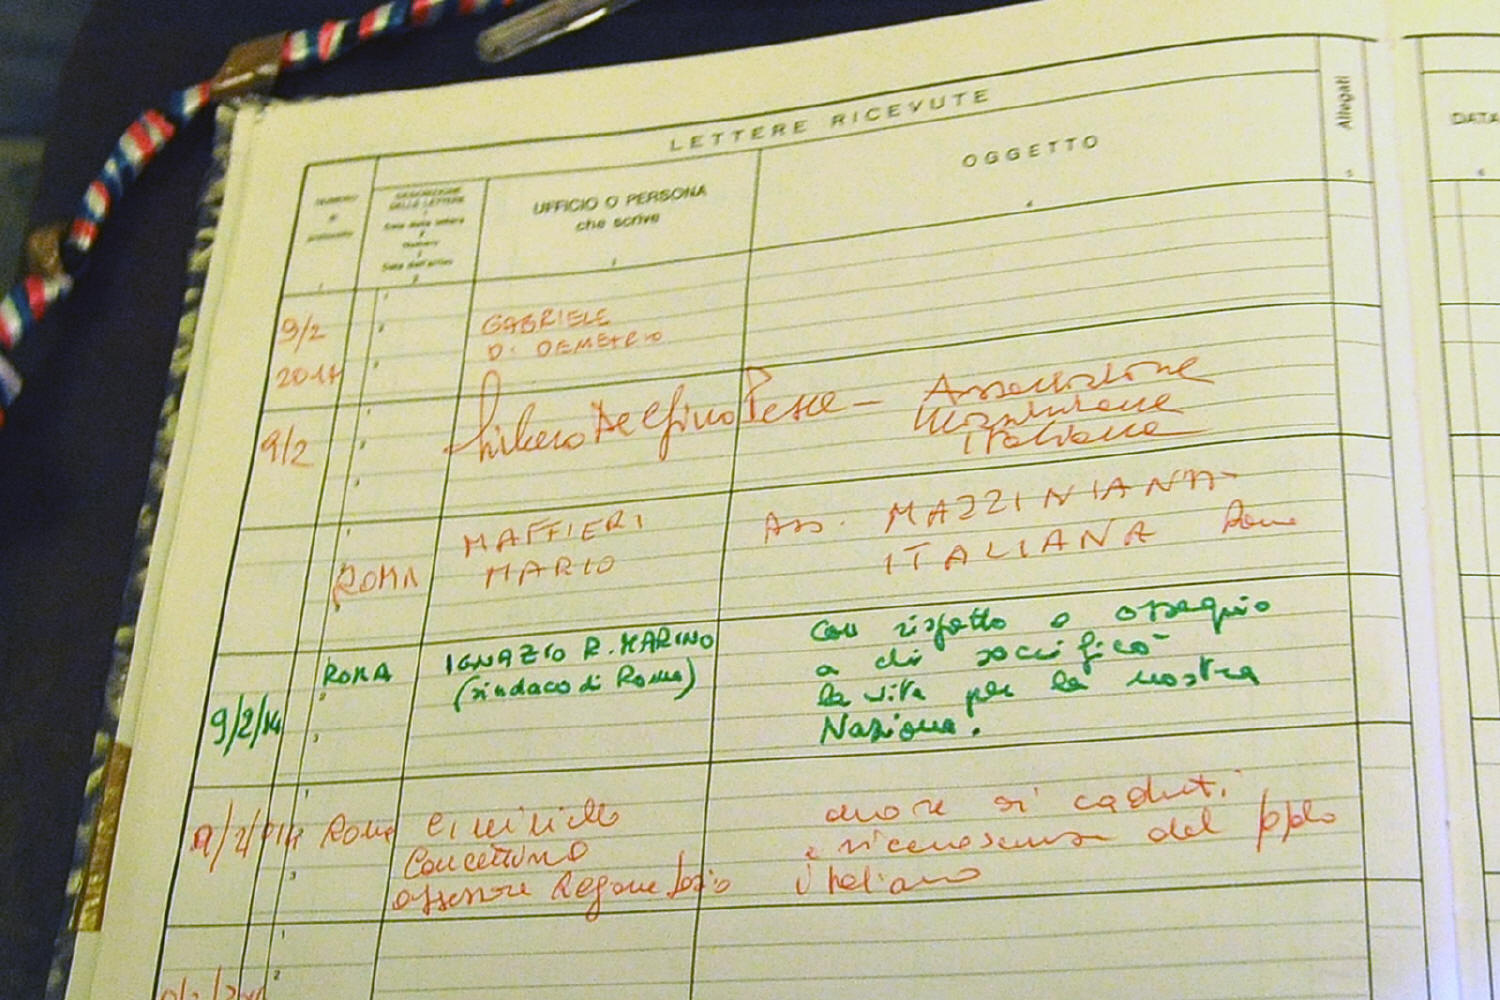 LETTERE RICEVUTE
UFFICIO O PERSONA
che scrive
OGGETTO
Allegati
DATA
9/2
2014
GABRIELE
D. DEMETRIO
9/2
Libero Delfino Pesce - Associazione
Mazziniana
Italiana
ROMA
MAFFIERI
MARIO
Ass. MAZZINIANA
ITALIANA Roma
9/2/14
ROMA
IGNAZIO R. MARINO
(sindaco di Roma)
Con rispetto e ossequio
a chi sacrificò
la vita per la nostra
Nazione.
9/2/2014 Roma
Concettina
assessore Regione Lazio
onore ai caduti
e riconoscenza del popolo
italiano